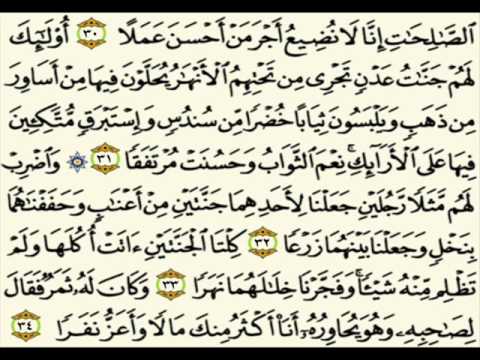 ٱلصَّٰلِحَٰتِ إِنَّا لَا نُضِيعُ أَجْرَ مَنْ أَحْسَنَ عَمَلًا ٣٠ أُو۟لَٰٓئِكَ
لَهُمْ جَنَّٰتُ عَدْنٍ تَجْرِى مِن تَحْتِهِمُ ٱلْأَنْهَٰرُ يُحَلَّوْنَ فِيهَا مِنْ أَسَاوِرَ
مِن ذَهَبٍ وَيَلْبَسُونَ ثِيَابًا خُضْرًا مِّن سُندُسٍ وَإِسْتَبْرَقٍ مُّتَّكِـِٔينَ
فِيهَا عَلَى ٱلْأَرَآئِكِ ۚ نِعْمَ ٱلثَّوَابُ وَحَسُنَتْ مُرْتَفَقًا ٣١ ۞ وَٱضْرِبْ
لَهُم مَّثَلًا رَّجُلَيْنِ جَعَلْنَا لِأَحَدِهِمَا جَنَّتَيْنِ مِنْ أَعْنَٰبٍ وَحَفَفْنَٰهُمَا
بِنَخْلٍ وَجَعَلْنَا بَيْنَهُمَا زَرْعًا ٣٢ كِلْتَا ٱلْجَنَّتَيْنِ ءَاتَتْ أُكُلَهَا وَلَمْ
تَظْلِم مِّنْهُ شَيْـًٔا ۚ وَفَجَّرْنَا خِلَٰلَهُمَا نَهَرًا ٣٣ وَكَانَ لَهُۥ ثَمَرٌ فَقَالَ
لِصَٰحِبِهِۦ وَهُوَ يُحَاوِرُهُۥٓ أَنَا۠ أَكْثَرُ مِنكَ مَالًا وَأَعَزُّ نَفَرًا ٣٤